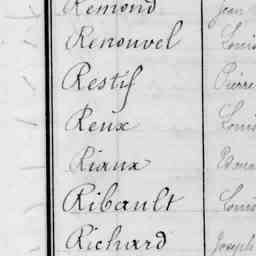 Remond Jean
Renouvel Louis
Restif Pierre
Reux Louis
Riaux
Ribault Louis
Richard Joseph